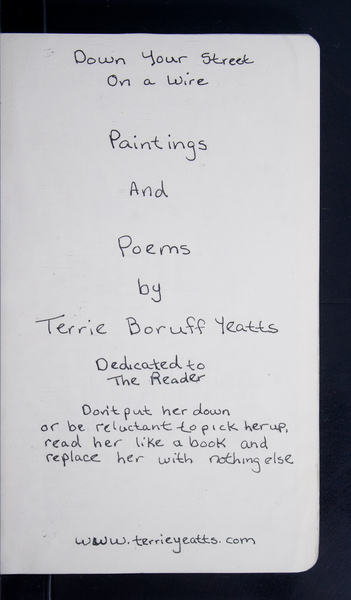 Down Your Street
On a Wire
Paintings
And
Poems
by
Terrie Boruff Yeatts
Dedicated to
The Reader
Don't put her down
or be reluctant to pick her up,
read her like a book and
replace her with nothing else
www.terrieyeatts.com